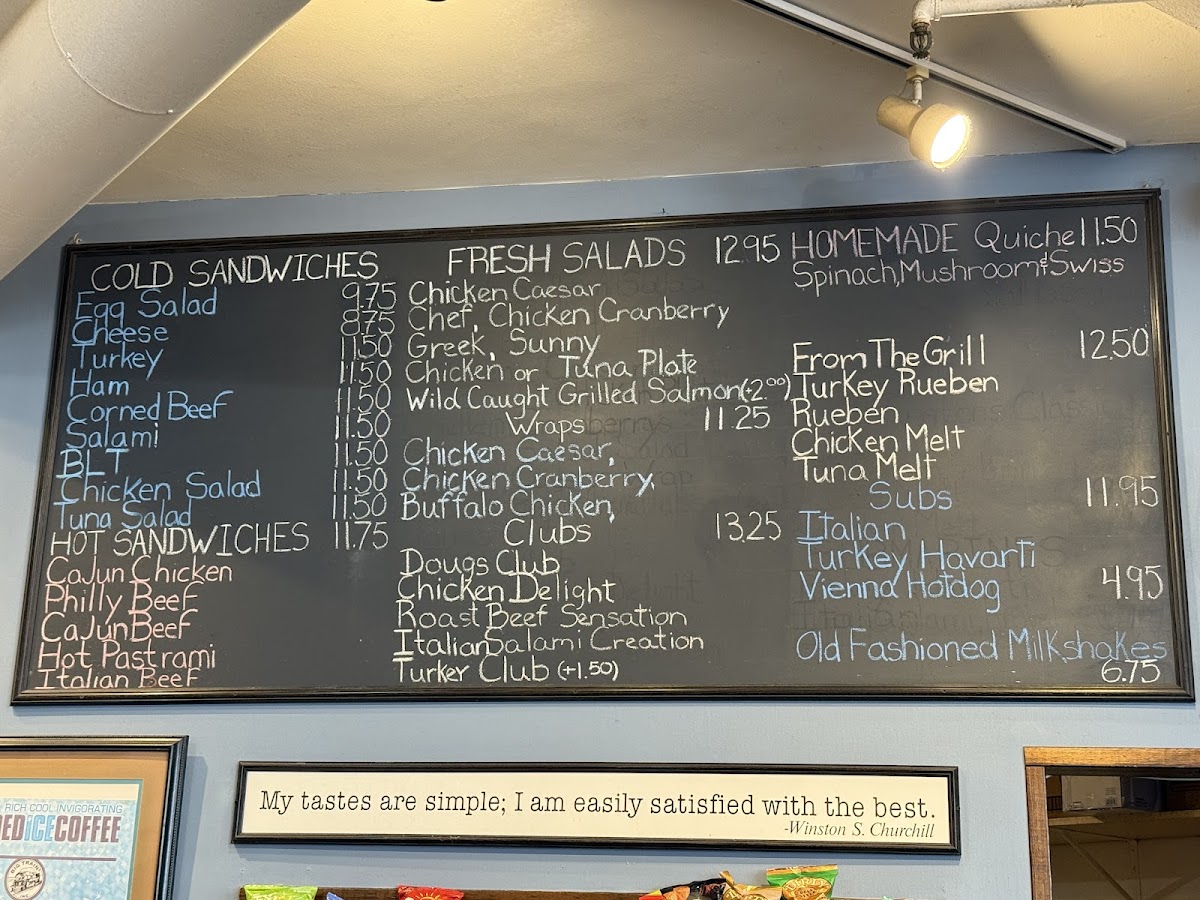 COLD SANDWICHES
Egg Salad 9.75
Cheese 8.75
Turkey 11.50
Ham 11.50
Corned Beef 11.50
Salami 11.50
BLT 11.50
Chicken Salad 11.50
Tuna Salad 11.50
HOT SANDWICHES 11.75
Cajun Chicken
Philly Beef
Cajun Beef
Hot Pastrami
Italian Beef
FRESH SALADS 12.95
Chicken Caesar
Chef, Chicken Cranberry
Greek, Sunny
Chicken or Tuna Plate
Wild Caught Grilled Salmon (+2.00)
Wraps 11.25
Chicken Caesar,
Chicken Cranberry,
Buffalo Chicken,
Clubs 13.25
Dougs Club
Chicken Delight
Roast Beef Sensation
Italian Salami Creation
Turkey Club (+1.50)
HOMEMADE Quiche 11.50
Spinach, Mushroom & Swiss
From The Grill 12.50
Turkey Rueben
Rueben
Chicken Melt
Tuna Melt
Subs 11.95
Italian
Turkey Havarti
Vienna Hotdog 4.95
Old Fashioned Milkshakes
6.75
My tastes are simple; I am easily satisfied with the best.
-Winston S. Churchill
RICH COOL INVIGORATING
ED ICE COFFEE
BIG TRAIN